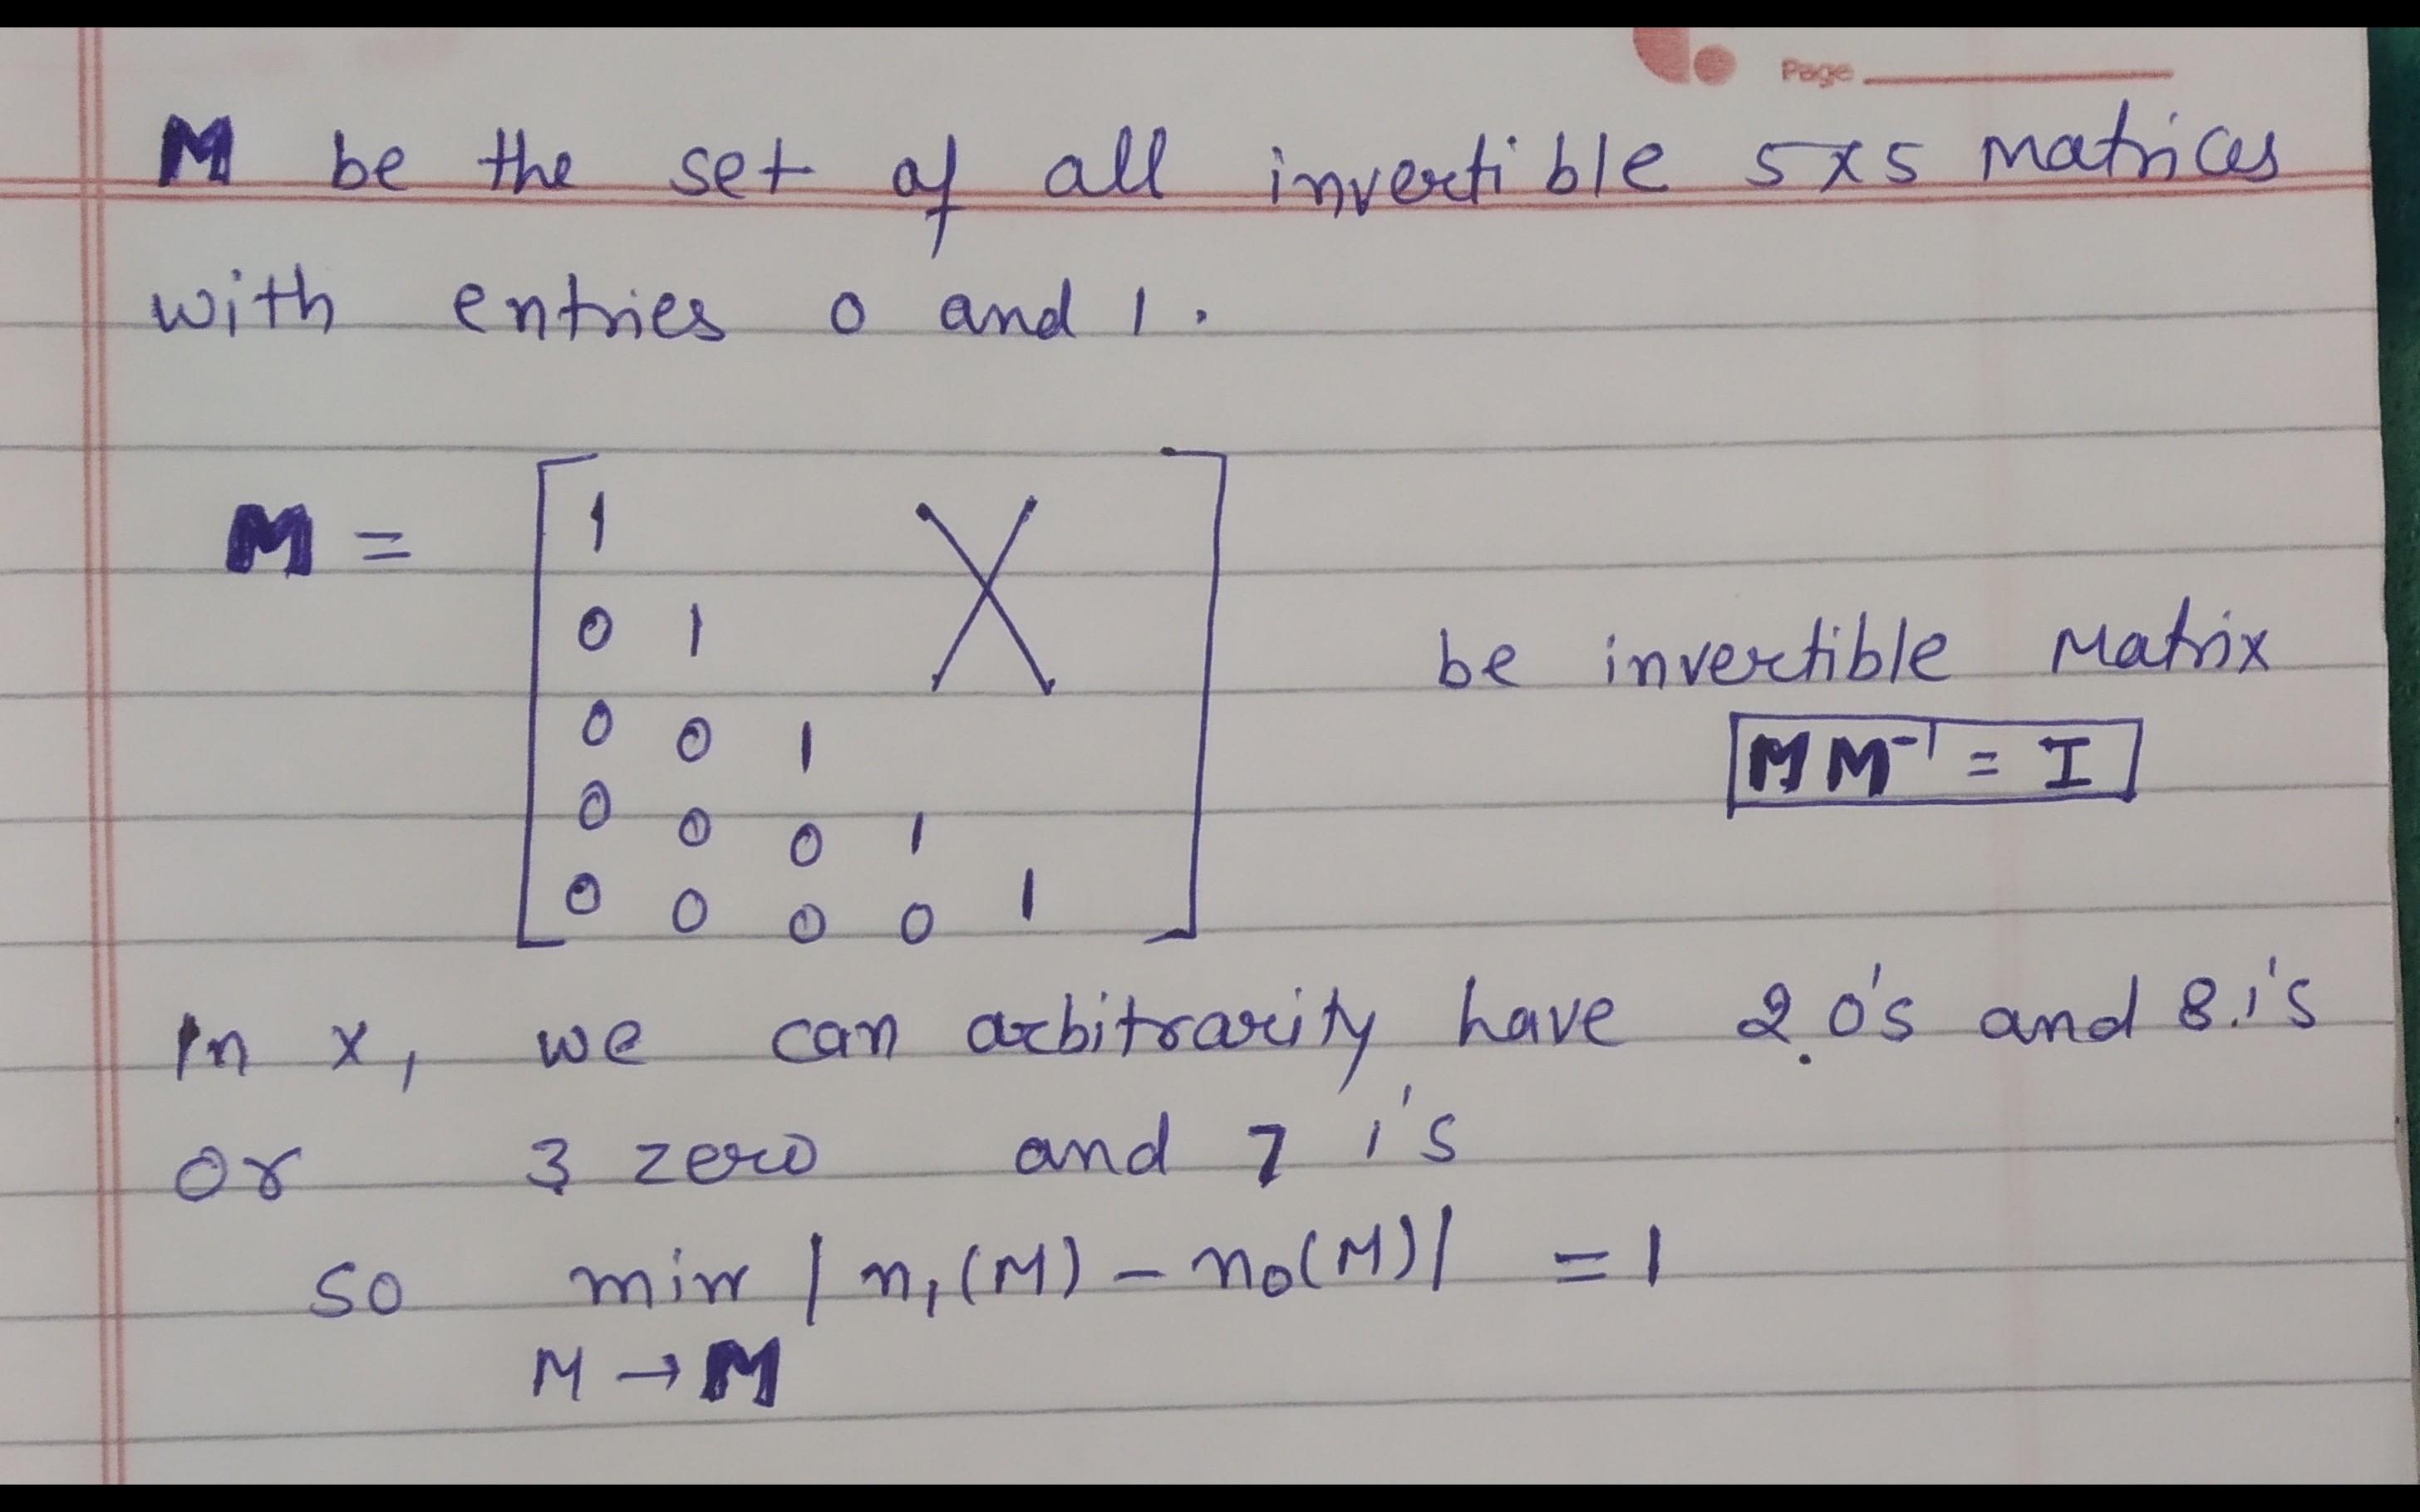 Page
M be the set of all invertible 5x5 matrices
with entries 0 and 1.
M = [ 1 X
0 1
0 0 1
0 0 0 1
0 0 0 0 1 ]
be invertible Matrix
M M⁻¹ = I
In x, we can arbitrarity have 2 0's and 8 1's
or 3 zero and 7 1's
so min | n₁(M) - n₀(M)| = 1
M → M